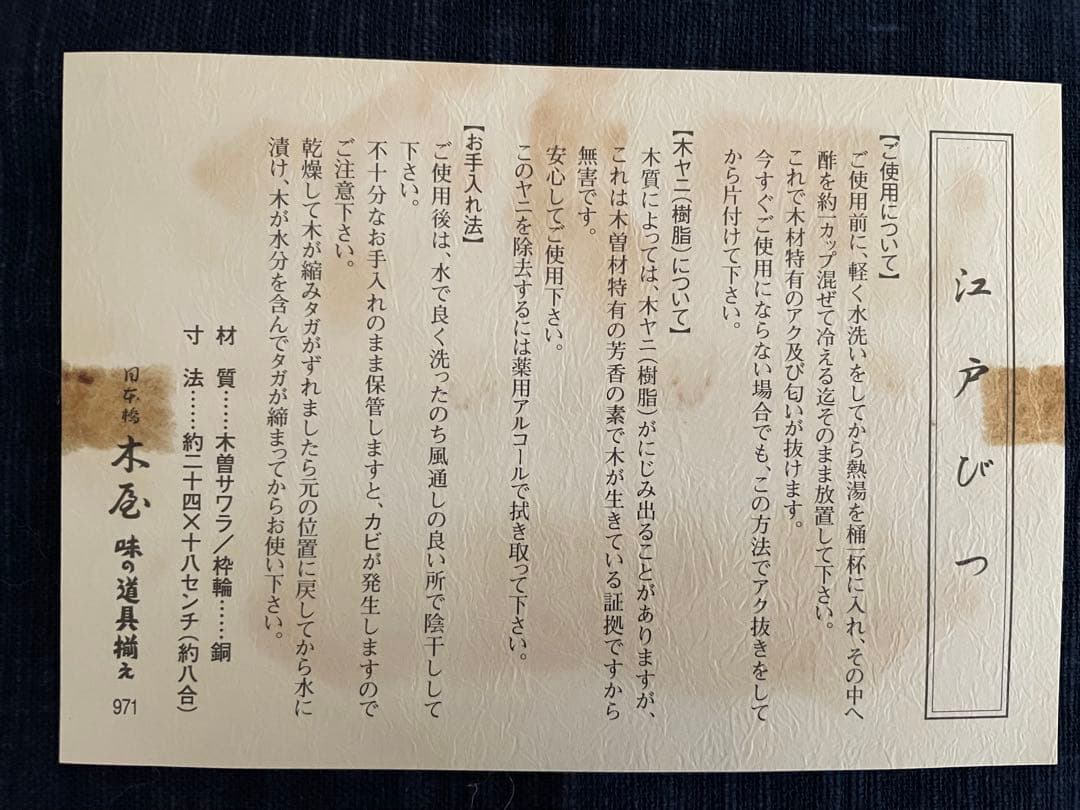 江戸びつ
【ご使用について】
ご使用前に、軽く水洗いをしてから熱湯を桶一杯に入れ、その中へ
酢を約一カップ混ぜて冷える迄そのまま放置して下さい。
これで木材特有のアク及び匂いが抜けます。
今すぐご使用にならない場合でも、この方法でアク抜きをして
から片付けて下さい。
【木ヤニ(樹脂)について】
木質によっては、木ヤニ(樹脂)がにじみ出ることがありますが、
これは木曽材特有の芳香の素で木が生きている証拠ですから
無害です。
安心してご使用下さい。
このヤニを除去するには薬用アルコールで拭き取って下さい。
【お手入れ法】
ご使用後は、水で良く洗ったのち風通しの良い所で陰干しして
下さい。
不十分なお手入れのまま保管しますと、カビが発生しますので
ご注意下さい。
乾燥して木が縮みタガがずれましたら元の位置に戻してから水に
漬け、木が水分を含んでタガが締まってからお使い下さい。
材質……木曽サワラ/枠輪……銅
寸法……約二十四×十八センチ(約八合)
日本橋 木屋 味の道具揃え 971